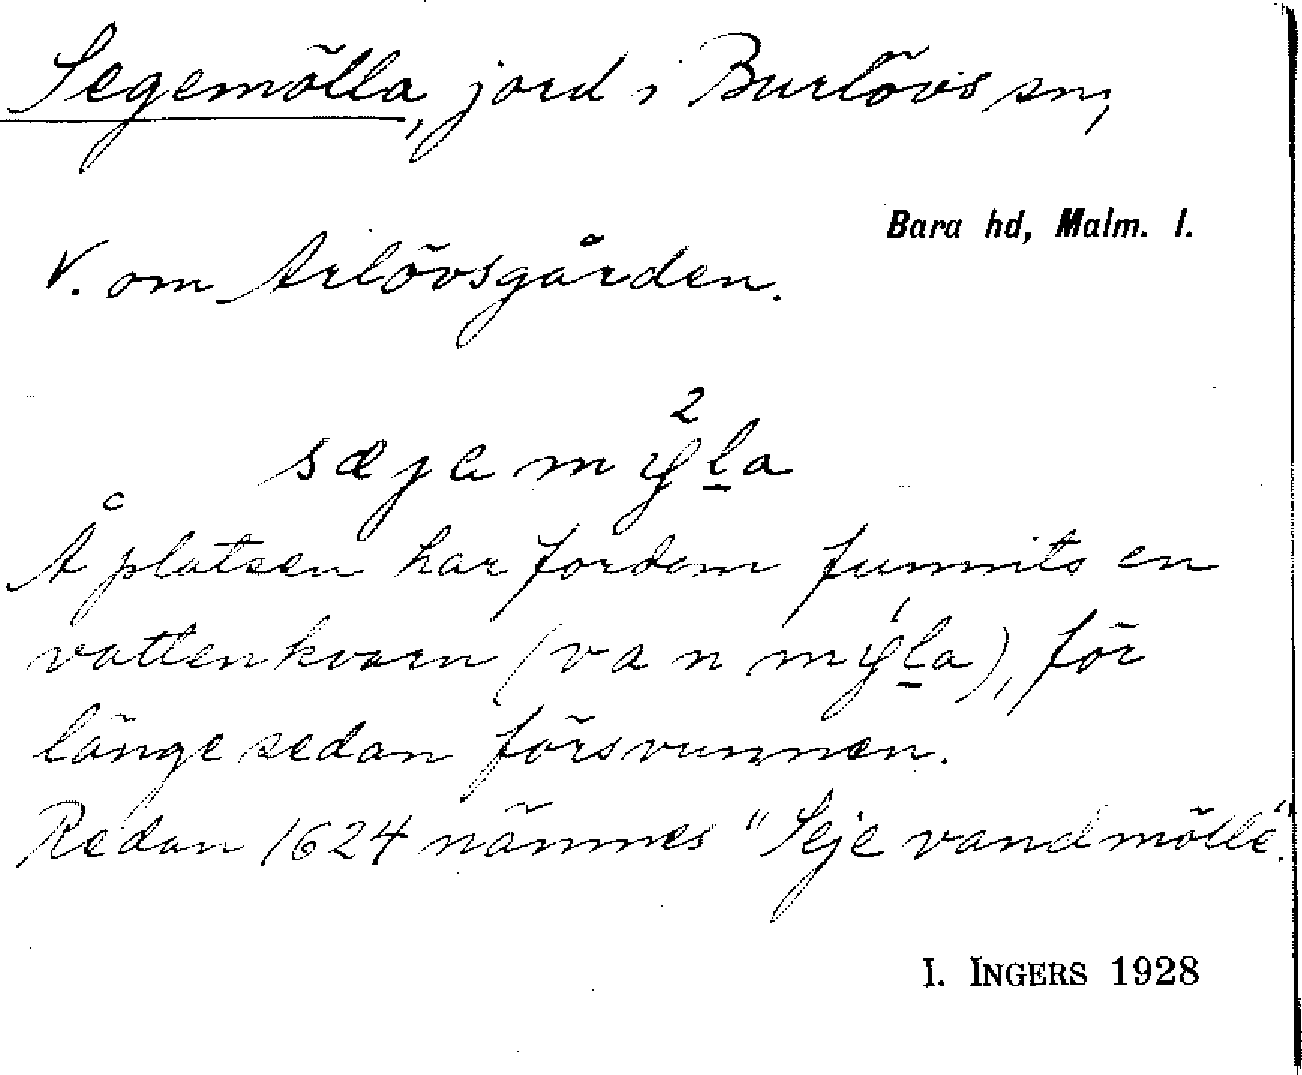 Segemölla, jord i Burlövs sn,
Bara hd, Malm. l.
V. om Arlövsgården.
sæjemýla
Å platsen har fordom funnits en
vattenkvarn (van mýla), för
länge sedan försvunnen.
Redan 1624 nämnes "Seje vandmölle".
I. INGERS 1928